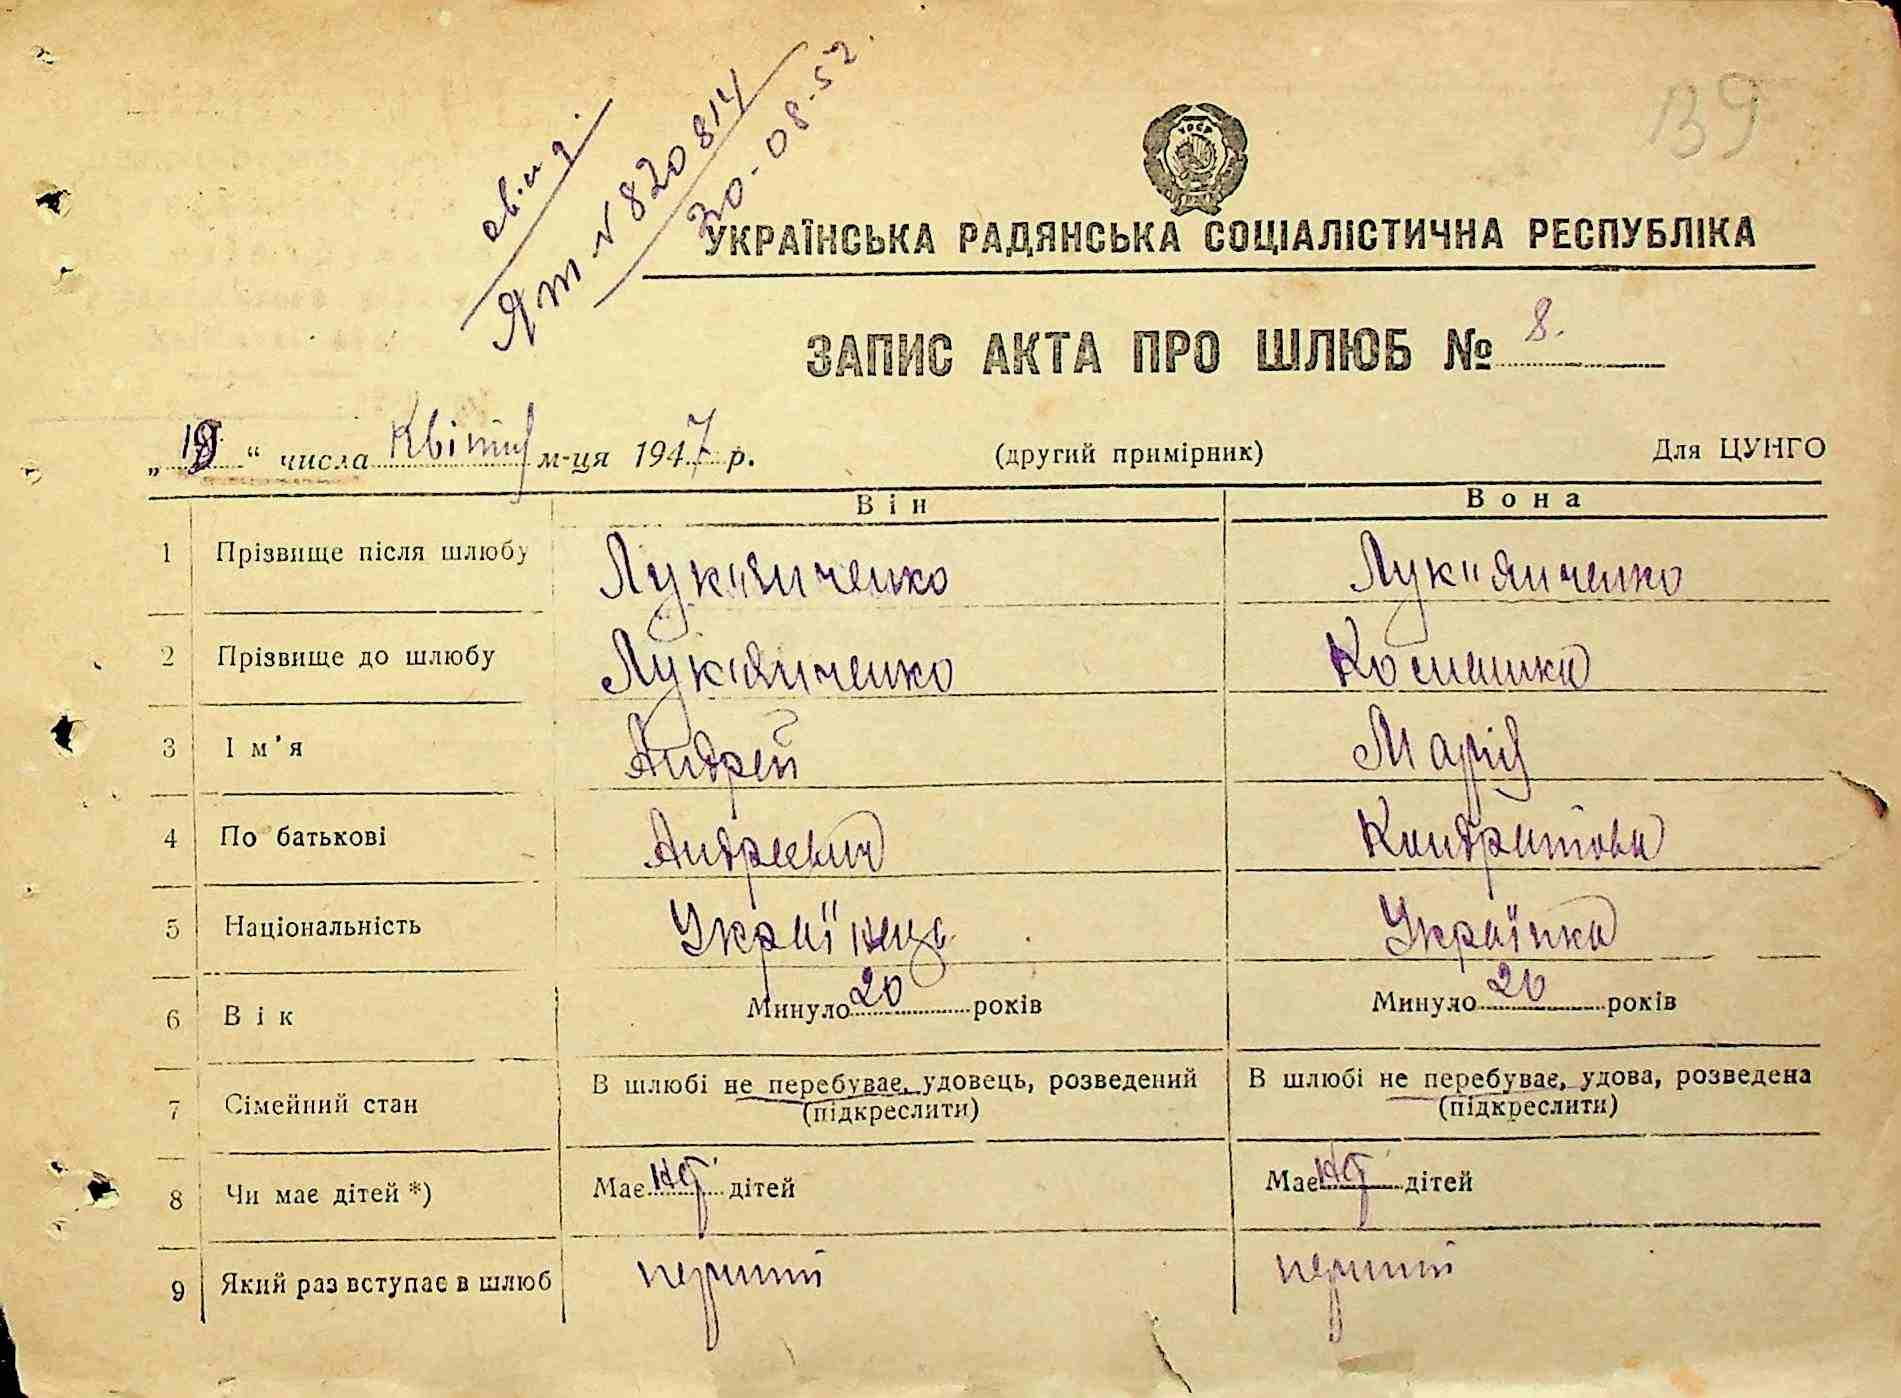 139
свид.
ЯТ № 820814
30-08-52.
УРСР
УКРАЇНСЬКА РАДЯНСЬКА СОЦІАЛІСТИЧНА РЕСПУБЛІКА
ЗАПИС АКТА ПРО ШЛЮБ № 8.
„ “ числа Квітня м-ця 1947 р. (другий примірник) Для ЦУНГО
Він Вона
1 Прізвище після шлюбу Лук"янченко Лук"янченко
2 Прізвище до шлюбу Лук'янченко
3 Ім'я Андрей Марія
4 По батькові Андреевич Кондратовна
5 Національність Українець Українка
6 Вік Минуло 20 років Минуло 20 років
7 Сімейний стан В шлюбі не перебуває, удовець, розведений В шлюбі не перебуває, удова, розведена
(підкреслити) (підкреслити)
8 Чи має дітей *) Має дітей Має дітей
9 Який раз вступає в шлюб перший перший